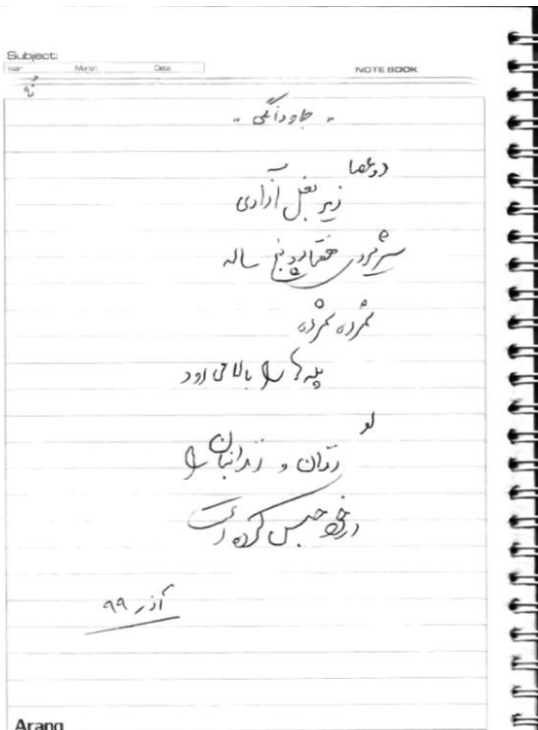 Subject:
Year: Month: Date:
NOTE BOOK
" جاودانگی "
دو عصا
زیر بغل آزادی
پیرمردی هفتاد و پنج ساله
شمرده شمرده
پله ها را بالا می رود
او
زندان و زندانبان را
در خود حبس کرده است
آذر ۹۹
Arang